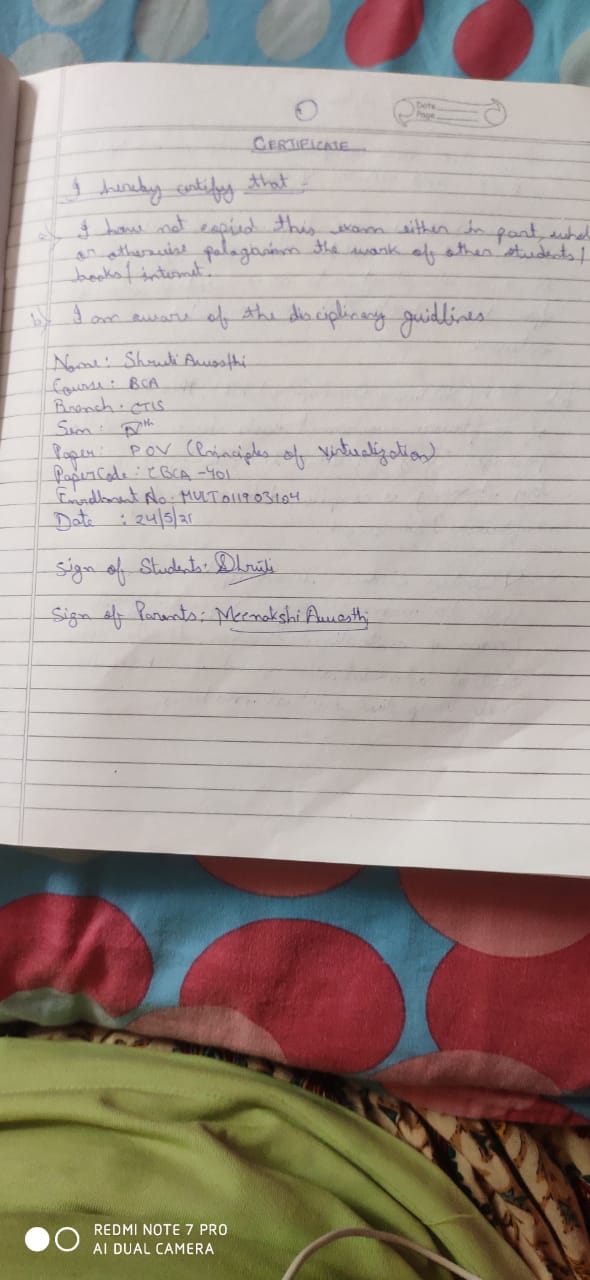 ①
Date
Page
CERTIFICATE
I hereby certify that -
a) I have not copied this exam either in part, whol
or otherwise palagarism the work of other students /
books / internet.
b) I am aware of the disciplinary guidlines
Name: Shruti Awasthi
Course: BCA
Branch: CTIS
Sem: IVth
Paper: POV (Principles of virtualization)
Paper Code: CBCA-401
Enrollment No: MULT011903104
Date : 24/5/21
Sign of Students: Shruti
Sign of Parents: Meenakshi Awasthi
REDMI NOTE 7 PRO
AI DUAL CAMERA